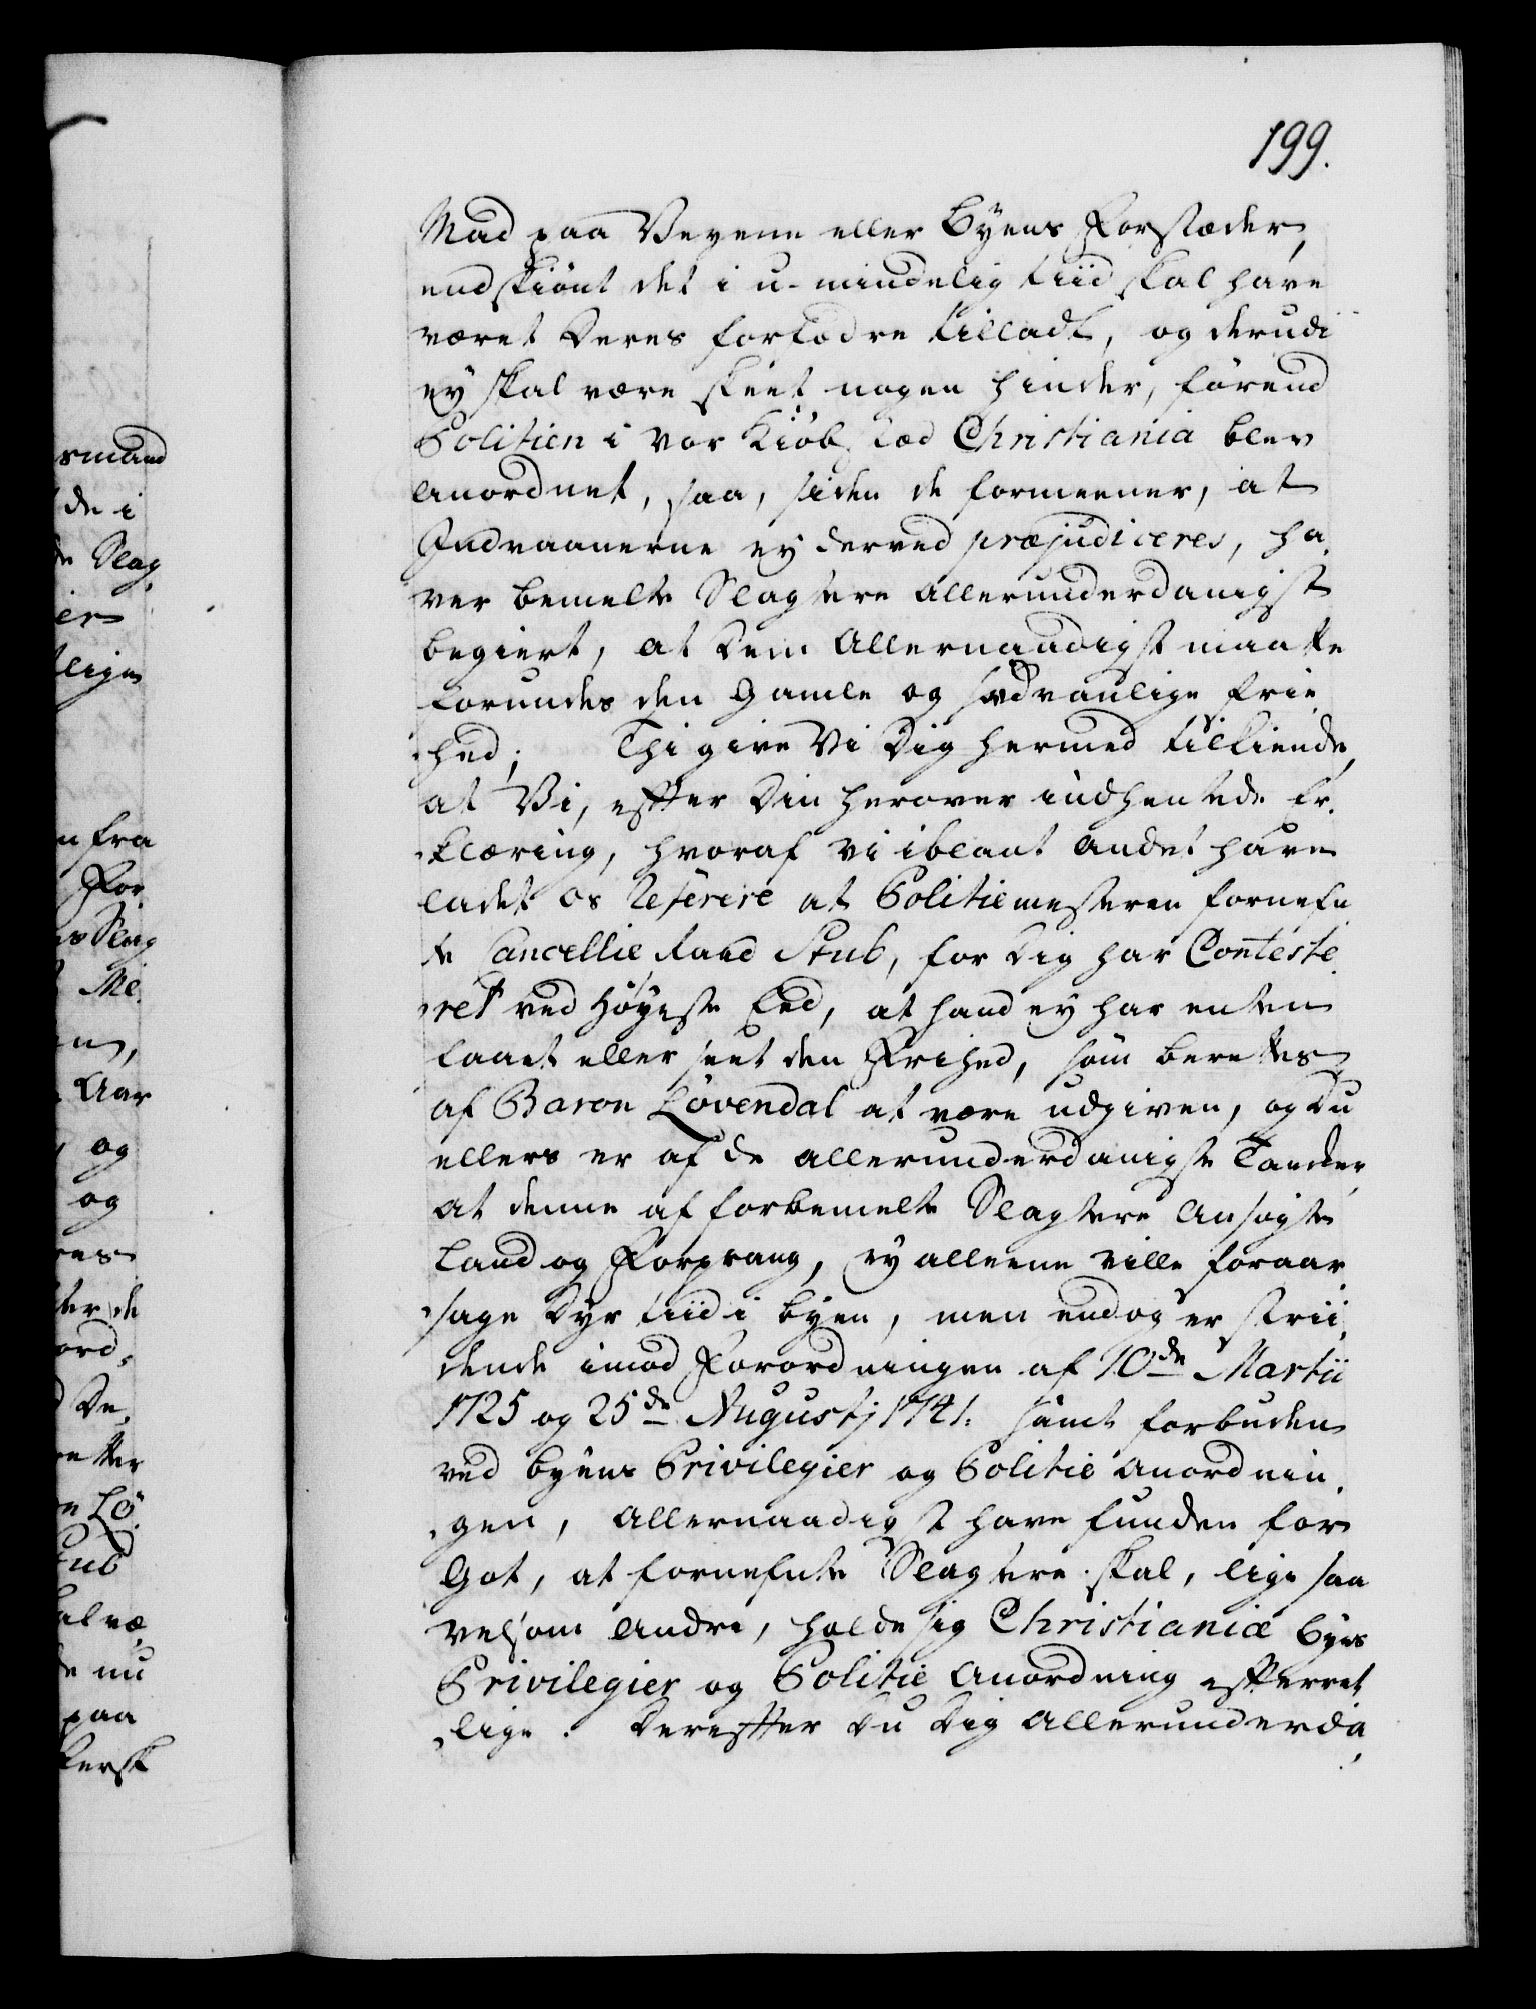 199.
Mad paa Veyene eller Byens Forstæder,
endskiönt det i u-mindelig tiid skal have
været deres forfædre tilladt, og derudi
ey skal være skeet nogen hinder, förend
Politien i vor Kiöbstæd Christiania blev
anordnet, saa, siden de formeener, at
Indvaanerne ey derved præjudiceres, ha¬
ver bemelte Slagtere allerunderdanigst
begiert, at dem allernaadigst maatte
forundes den gamle og sædvanlige frie¬
hed; Thi give Vi dig hermed tilkiende,
at Vi, efter din herover indhentede Er¬
klæring, hvoraf vi iblant andet have
ladet os referere at Politiemesteren fornefn¬
te Cancellie Raad Stub, for dig har Conteste¬
ret ved höyeste Eed, at hand ey har enten
faaet eller seet den Frihed, som berettes
af Baron Lövendal at være udgiven, og du
ellers er af de allerunderdanigste Tancker,
at denne af forbemelte Slagtere ansögte
Land og Forprang, ey alleene ville foraar¬
sage dyr tiid i byen, men endog er strii¬
dende imod Forordningen af 10de Martii
1725 og 25de Augustj 1741. samt forbuden
ved byens Privilegier og Politie anordnin¬
gen, allernaadigst have funden for
Got, at fornefnte Slagtere skal, lige saa
velsom andre, holde sig Christianiæ byes
Privilegier og Politie anordning efterret¬
lige. Derefter du dig allerunderda¬
smand
de i
Slag¬
er
lige
fra
For¬
Slag
Me¬
Aar
og
og
res
de
ord¬
De¬
Lö¬
tub
nu
paa